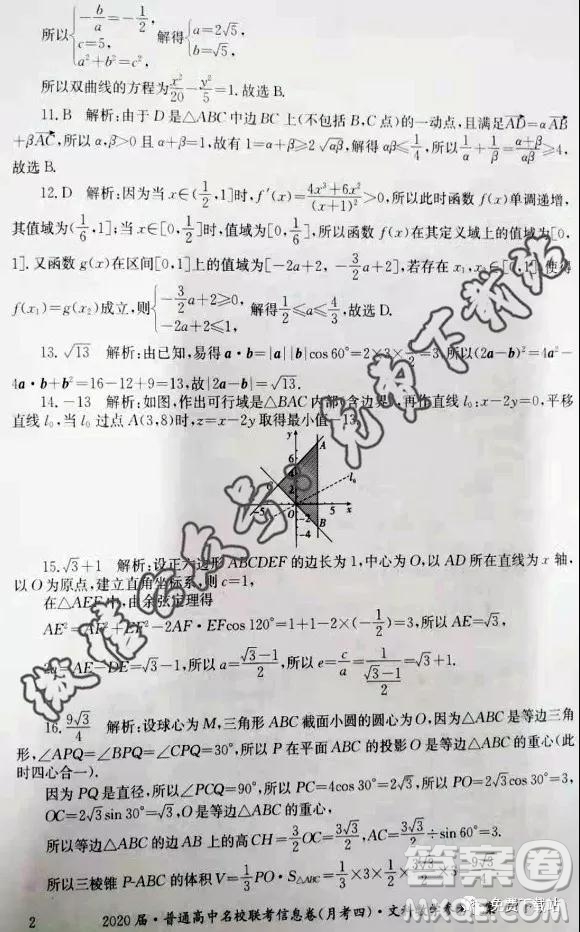 所以{-b/a=-1/2, c=5, a²+b²=c², 解得{a=2√5, b=√5,
所以双曲线的方程为x²/20-y²/5=1.故选B.
11.B 解析:由于D是△ABC中边BC上(不包括B,C点)的一动点,且满足AD=αAB
+βAC,所以α,β>0且α+β=1,故有1=α+β≥2√αβ,解得αβ≤1/4,所以1/α+1/β=(α+β)/αβ≥4,
故选B.
12.D 解析:因为当x∈(1/2,1]时,f′(x)=(4x³+6x²)/(x+1)²>0,所以此时函数f(x)单调递增,
其值域为(1/6,1];当x∈[0,1/2]时,值域为[0,1/6],所以函数f(x)在其定义域上的值域为[0,
1].又函数g(x)在区间[0,1]上的值域为[-2a+2,-3/2a+2],若存在x₁,x₂∈[0,1]使得
f(x₁)=g(x₂)成立,则{-3/2a+2≥0, -2a+2≤1, 解得1/2≤a≤4/3,故选D.
13.√13 解析:由已知,易得a·b=|a||b|cos60°=2×3×1/2=3,所以(2a-b)²=4a²-
4a·b+b²=16-12+9=13,故|2a-b|=√13.
14.-13 解析:如图,作出可行域是△BAC内部(含边界),再作直线l₀:x-2y=0,平移
直线l₀,当l₀过点A(3,8)时,z=x-2y取得最小值-13.
y
A
6
4
2
l₀
-5
O
5
x
-2
-4
B
15.√3+1 解析:设正六边形ABCDEF的边长为1,中心为O,以AD所在直线为x轴,
以O为原点,建立直角坐标系,则c=1,
在△AEF中,由余弦定理得
AE²=AF²+EF²-2AF·EFcos120°=1+1-2×(-1/2)=3,所以AE=√3,
2a=AE-DE=√3-1,所以a=(√3-1)/2,所以e=c/a=1/((√3-1)/2)=√3+1.
16.9√3/4 解析:设球心为M,三角形ABC截面小圆的圆心为O,因为△ABC是等边三角
形,∠APQ=∠BPQ=∠CPQ=30°,所以P在平面ABC的投影O是等边△ABC的重心(此
时四心合一).
因为PQ是直径,所以∠PCQ=90°,所以PC=4cos30°=2√3,所以PO=2√3cos30°=3,
OC=2√3sin30°=√3,O是等边△ABC的重心,
所以等边△ABC的边AB上的高CH=3/2OC=3√3/2,AC=3√3/2÷sin60°=3.
所以三棱锥P-ABC的体积V=1/3PO·S△ABC=1/3×3×1/2×3√3/2×3=9√3/4.
2 2020届·普通高中名校联考信息卷(月考四)·文科数学参考
微信公众号:免费下载站
答案圈
免费下载站